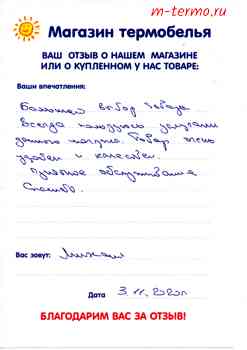 m-termo.ru
Магазин термобелья
ВАШ ОТЗЫВ О НАШЕМ МАГАЗИНЕ
ИЛИ О КУПЛЕННОМ У НАС ТОВАРЕ:
Ваши впечатления:
Большой выбор товара
Всегда пользуюсь услугами
данного магазина. Товар очень
удобен и качествен.
Приятное обслуживание
Спасибо.
Вас зовут: Михаил
Дата 3.11.2020г
БЛАГОДАРИМ ВАС ЗА ОТЗЫВ!